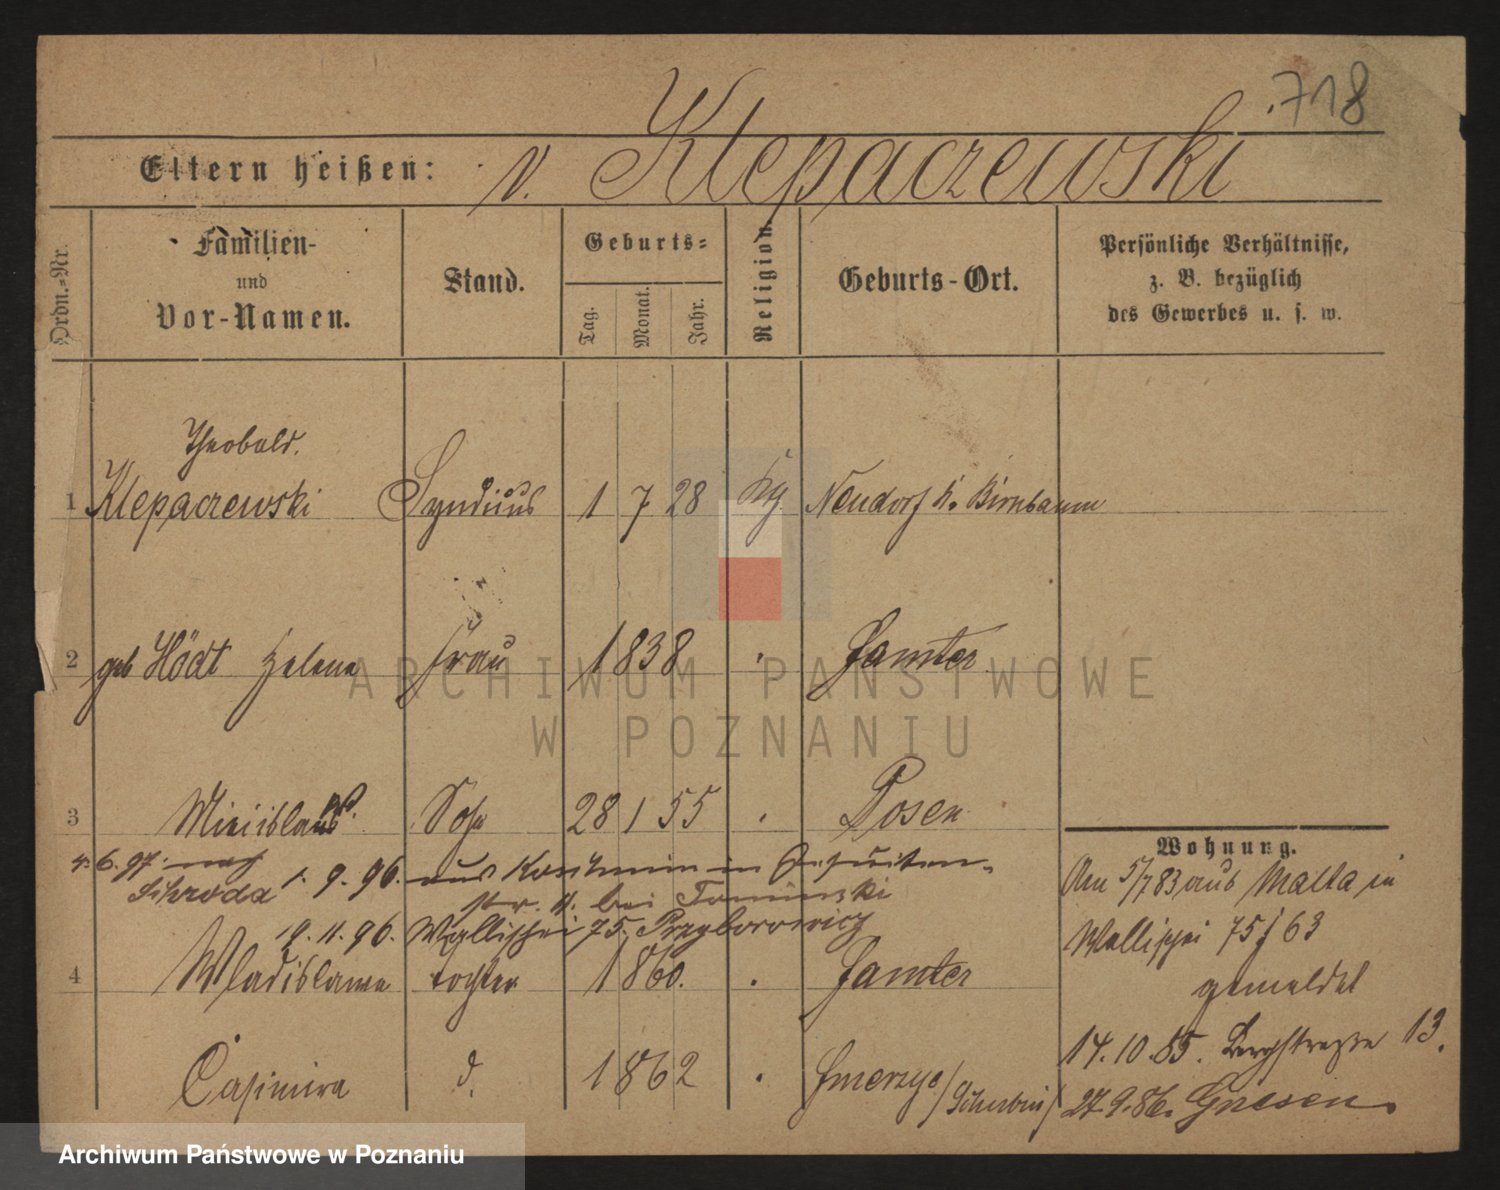 718
Eltern heißen: v. Klepaczewski
Ordn.-Nr.
Familien-
und
Vor-Namen.
Stand.
Geburts=
Tag.
Monat.
Jahr.
Religion.
Geburts-Ort.
Persönliche Verhältnisse,
z. B. bezüglich
des Gewerbes u. s. w.
Theobald.
1 Klepaczewski Syndicus 1 7 28 Neudorf b. Birnbaum
2 geb Hödt Helene Frau 1838 Samter
3 Miecislaus Sohn 28 1 55 Posen
4. 6. 97. nach 1. 9. 96. aus Koschmin in Jesuiten-
Schroda str. 11. bei Tominski
19. 11. 96. Wallischei 75. Przyborowicz
4 Wladislawa tochter 1860. Samter
Casimira d. 1862
Wohnung.
Am 5/7 83 aus Malta in
Wallischei 75/63
gemeldet
14. 10. 85. Bergstrasse 13.
27. 9. 86. Gnesen.
ARCHIWUM PAŃSTWOWE
W POZNANIU
Archiwum Państwowe w Poznaniu